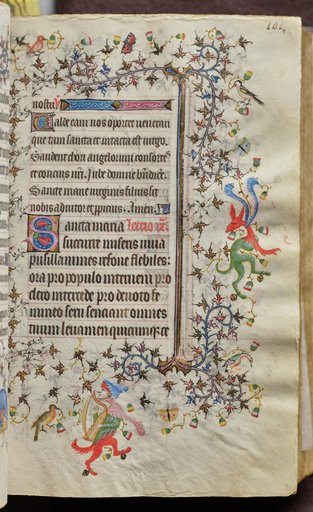 104
nostri
Valde eam nos oportet venerari
que tam sancta et intacta est virgo.
Gaudent chori angelorum consortes
et concives nri. Iube domne bndicere.
Sancte marie virginis filius sit
nobis adiutor et propicius. Amen.
Sancta maria Lectio
succurre miseris iuva
pusillanimes refove flebiles:
ora pro populo interveni pro
clero intercede pro devoto fe
mineo sexu senciant omnes
tuum levamen quicumque ce